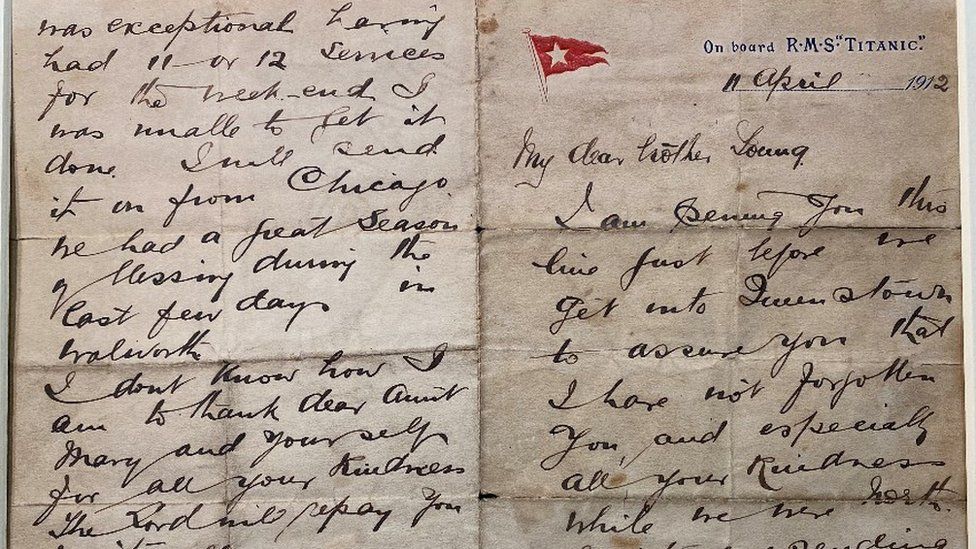 was exceptional having
had 11 or 12 Services
for the week-end I
was unable to get it
done. I will send
it on from Chicago.
We had a great Season
of blessing during the
last few days in
Walworth
I dont know how I
am to thank dear Aunt
Mary and yourself
for all your kindness
The Lord will repay you
On board R·M·S·"TITANIC".
11 April 1912
My dear brother Young
I am penning you this
line just before we
get into Queenstown
to assure you that
I have not forgotten
you, and especially
all your kindness
while we were North.